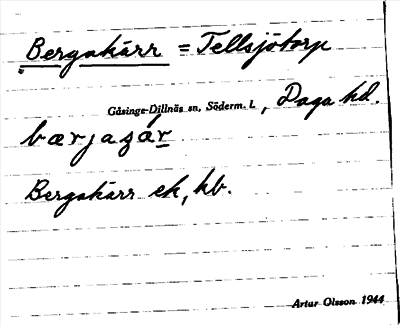 Bergakärr = Tellsjötorp
Gåsinge-Dillnäs sn, Söderm. l., Daga hd.
bærjaʒár
Bergakärr ek, hb.
Artur Olsson 1944